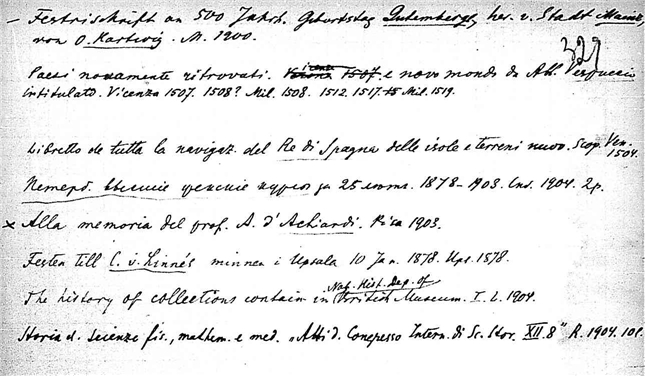 – Festrischrift an 500 Jahrb. Geburtsdag Gutembergs, her. v. Stadt Mainz,
von O. Hartwig. M. 1900.
329
Paesi novamente ritrovati. Vicenza 1507 e novo mondo da Alb. Vespuccio
intitulato. Vicenza 1507. 1508? Mil. 1508. 1512. 1517. Mil. 1519.
Libretto de tutta la navigaz. del Re di Spagna delle isole e terreni nuov. Scop. Ven. 1504.
Петерб. высшие женские курсы за 25 лет. 1878–1903. Спб. 1904. 2р.
× Alla memoria del prof. A. d'Achiardi. Pisa 1903.
Festen till C. v. Linnés minnen i Upsala 10 Jan. 1878. Ups. 1878.
Nat. Hist. Dep. of
The history of collections contain in British Museum. T. I. 1904.
Storia d. Scienze fis., mathem. e med. „Atti d. Congresso Intern. di Sc. Stor. XII. 8" R. 1904. 10l.